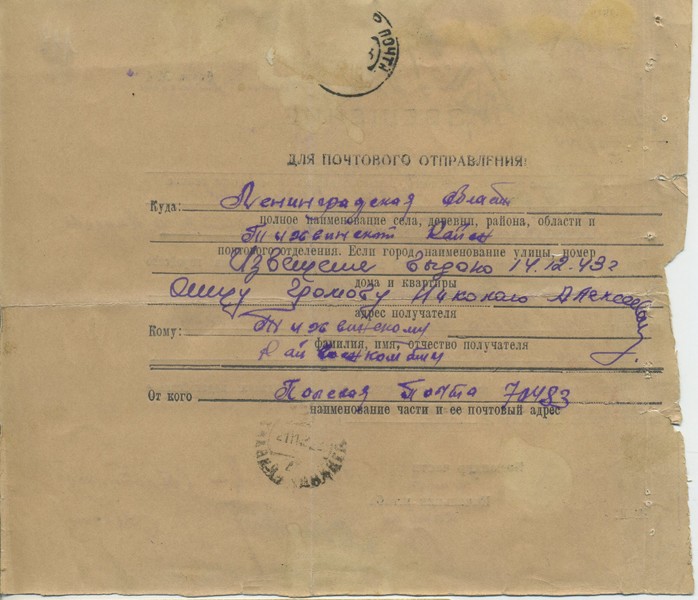 ПОЧТА
ДЛЯ ПОЧТОВОГО ОТПРАВЛЕНИЯ:
Куда: Ленинградская область
полное наименование села, деревни, района, области и
Тихвинский Район
почтового отделения. Если город-наименование улицы, номер
Извещение Выдано 14.12.43г
дома и квартиры
отцу Громову Николаю Алексеевичу
адрес получателя
Кому: Тихвинскому
фамилия, имя, отчество получателя
Райвоенкомату
От кого Полевая Почта 70483
наименование части и ее почтовый адрес